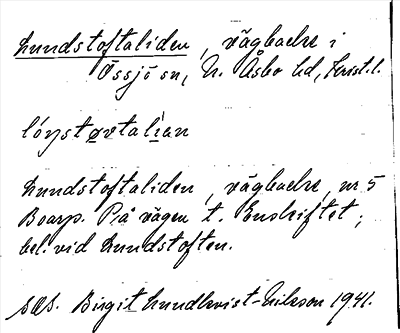 Lundstoftaliden, vägbacke i
Össjö sn, N. Åsbo hd, Krist. l.
lóŋstøvtalìan
Lundstoftaliden, vägbacke, nr 5
Boarp. På vägen t. Enskiftet;
bel. vid Lundstoften.
Birgit Lundkvist-Nilsson 1941.